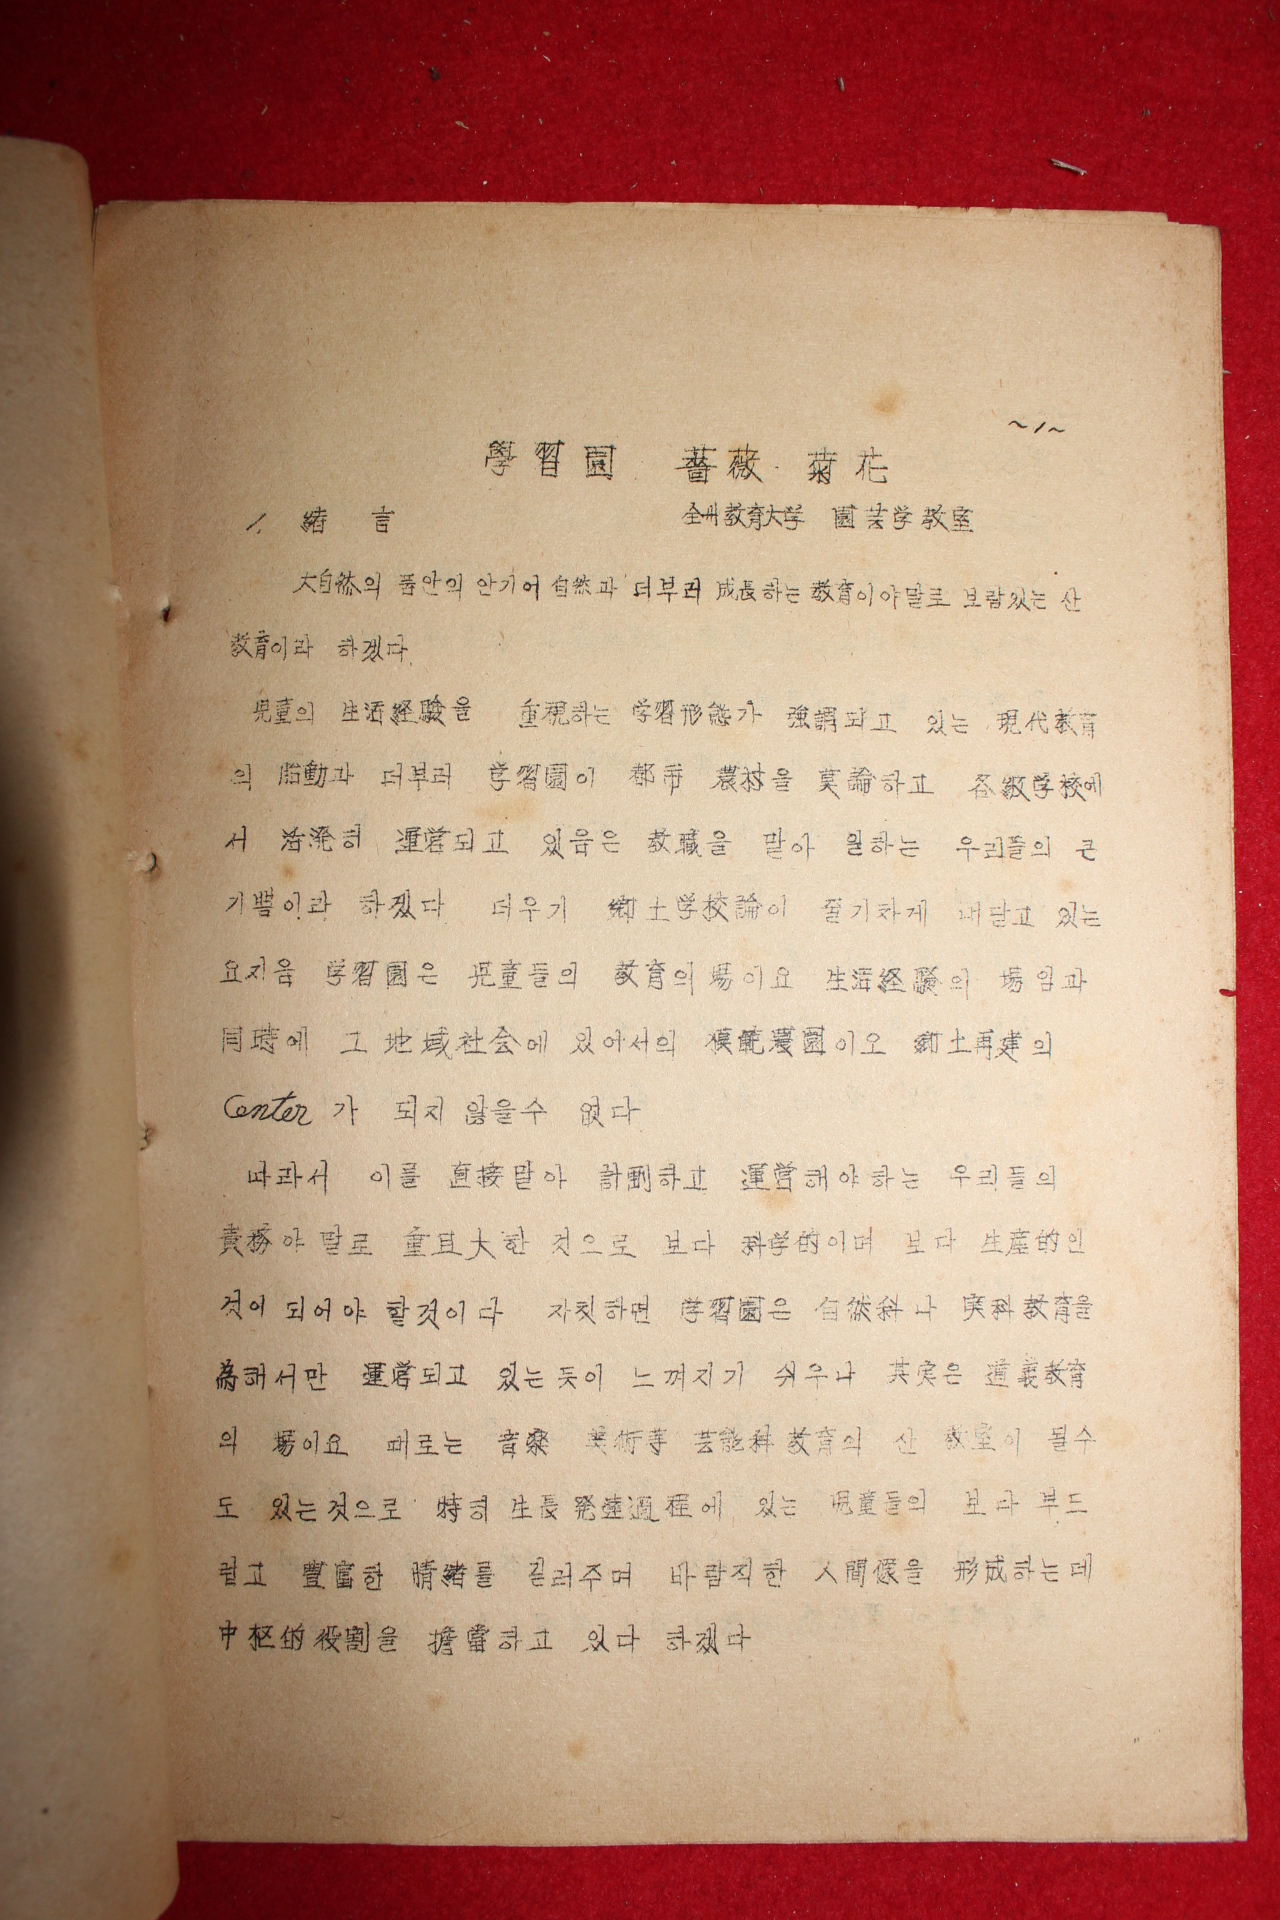 ~1~
學習園 薔薇 菊花
1. 緖言 全州教育大学 園芸学教室
大自然의 품안의 안기어 自然과 더부러 成長하는 教育이야말로 보람있는 산
教育이라 하겠다.
児童의 生活経験을 重視하는 学習形態가 強調되고 있는 現代教育
의 胎動과 더부러 学習園이 都市 農村을 莫論하고 各級学校에
서 活潑히 運営되고 있음은 教職을 맡아 일하는 우리들의 큰
기쁨이라 하겠다 더우기 郷土学校論이 줄기차게 내닫고 있는
요지음 学習園은 児童들의 教育의 場이요 生活経験의 場임과
同時에 그 地域社会에 있어서의 模範農園이오 郷土再建의
Center 가 되지 않을수 없다
따라서 이를 直接맡아 計劃하고 運営해야하는 우리들의
責務야 말로 重且大한 것으로 보다 科学的이며 보다 生産的인
것이 되어야 할것이다 자칫하면 学習園은 自然科나 実科教育을
為해서만 運営되고 있는듯이 느껴지기 쉬우나 其実은 道義教育
의 場이요 때로는 音楽 美術等 芸能科教育의 산 教室이 될수
도 있는것으로 特히 生長発達過程에 있는 児童들의 보다 부드
럽고 豊富한 情緖를 길러주며 바람직한 人間像을 形成하는데
中枢的役割을 擔當하고 있다 하겠다